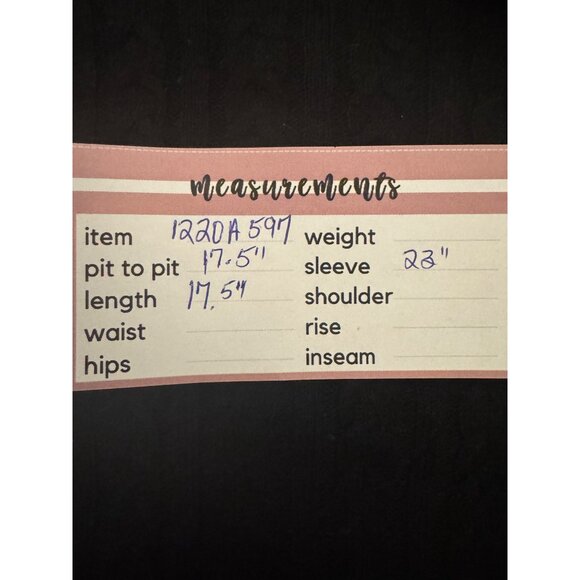 measurements
item 1220A597
pit to pit 17.5"
length 17.5"
waist
hips
weight
sleeve 23"
shoulder
rise
inseam